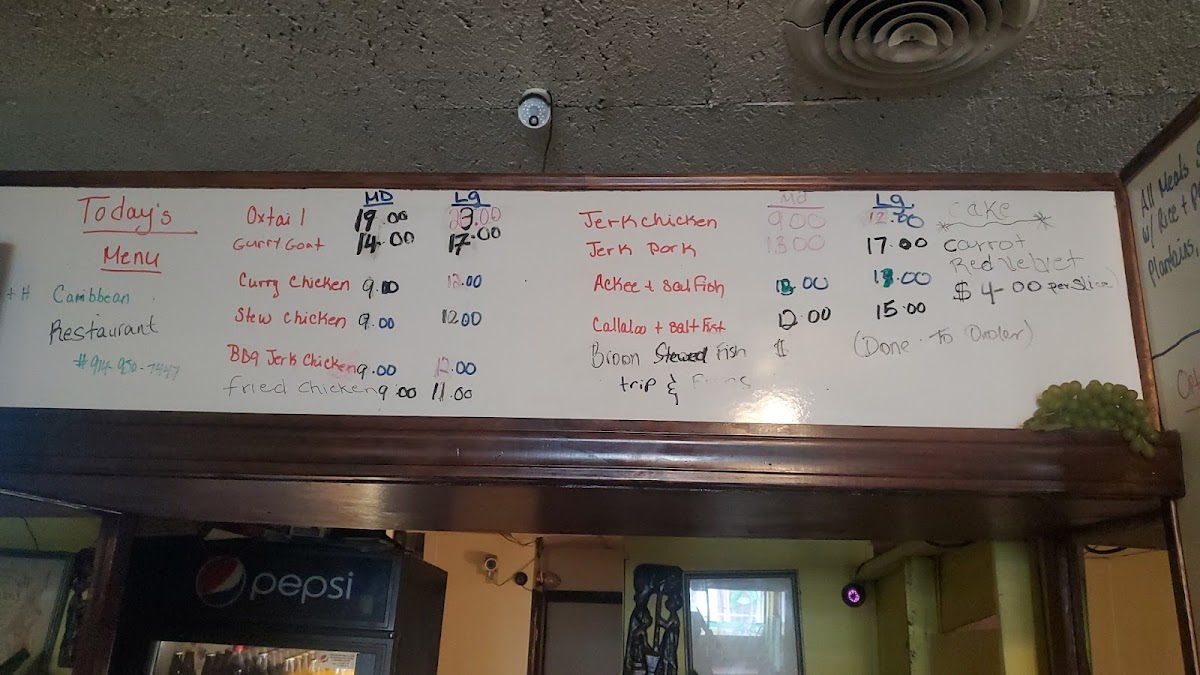 Today's
Menu
Caribbean
Restaurant
MD Lg
Oxtail 19.00
Curry Goat 14.00 17.00
Curry Chicken 9.00 12.00
Stew Chicken 9.00 1200
BBq Jerk Chicken 9.00 12.00
fried chicken 9 00 11.00
Md Lg
Jerk chicken 9.00 12.00
Jerk Pork 13.00 17.00
Ackee + Salt Fish
Callaloo + Salt Fish 12.00 15.00
Broon Stewed Fish $ (Done To Order)
trip &
Cake
Carrot
Red Velvet
$ 4.00 per slice
All Meals
w/ Rice +
Plantains,
pepsi